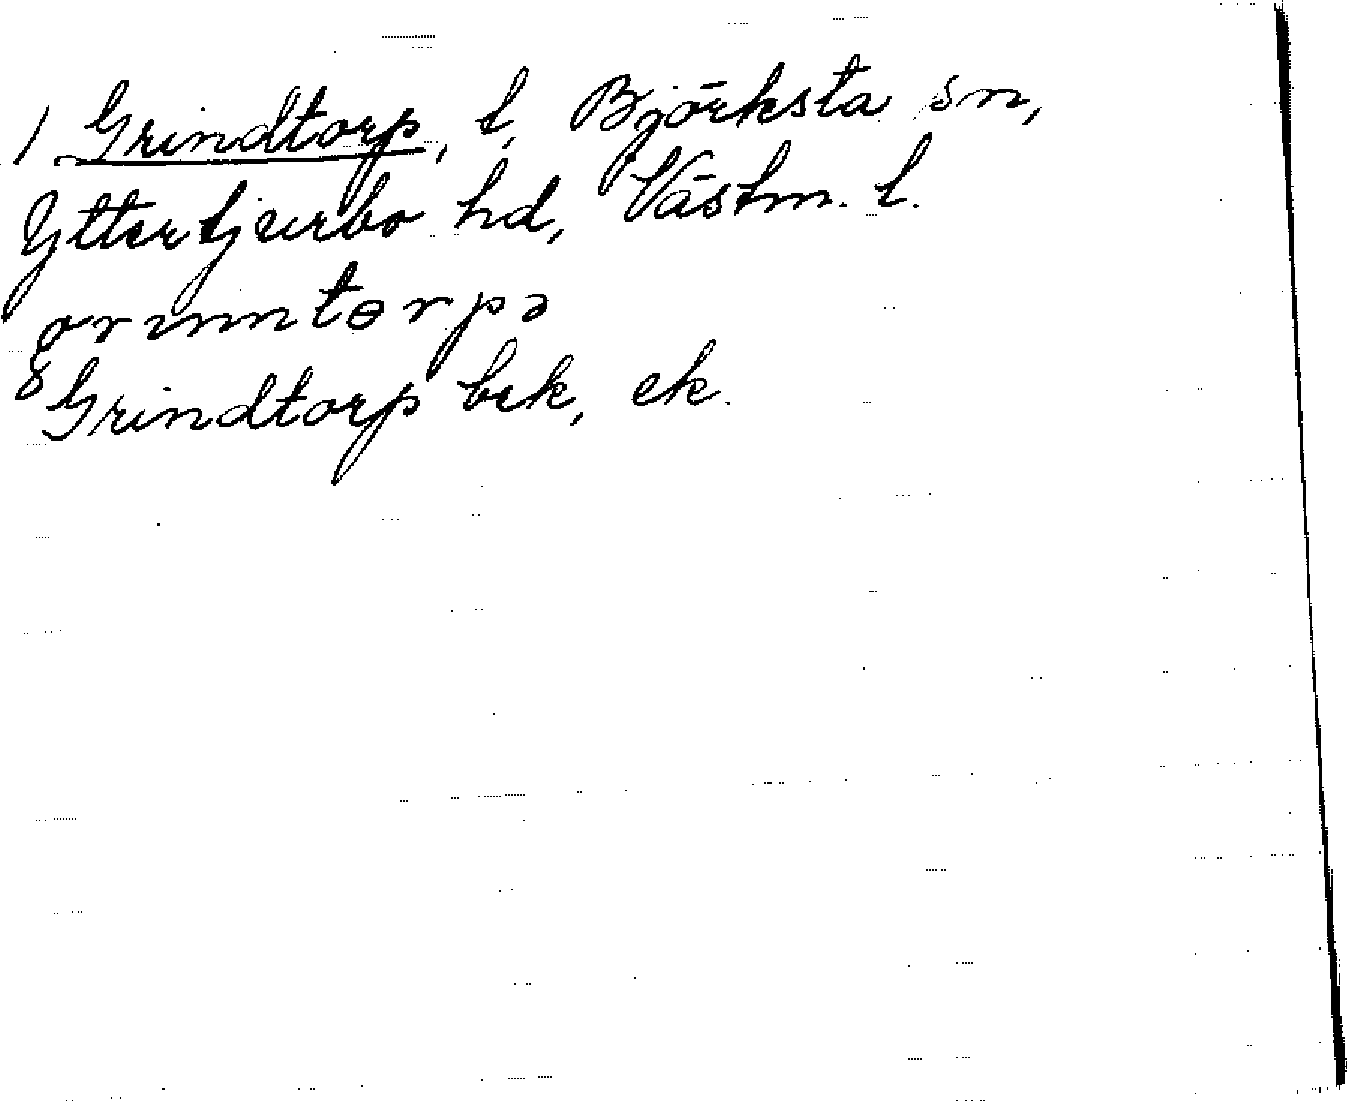 1 Grindtorp, t, Björksta sn,
Yttertjurbo hd, Västm. l.
grınntɵrpə
Grindtorp bek, ek.